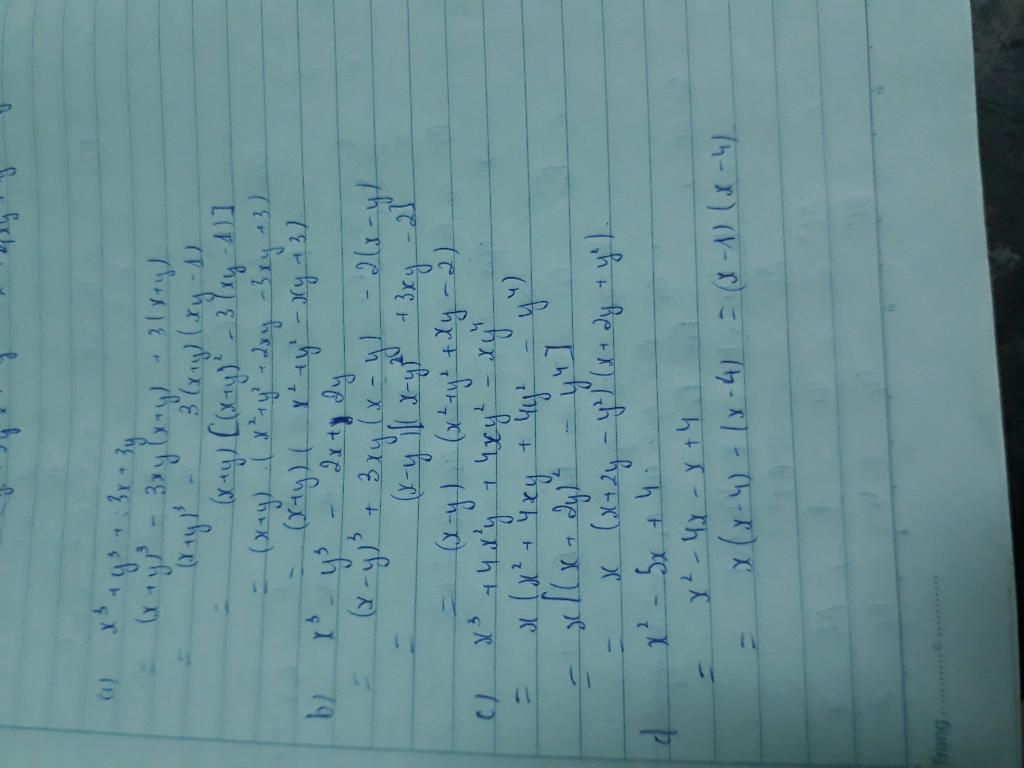 a) x³ + y³ + 3x + 3y
= (x + y)³ - 3xy(x+y) + 3(x+y)
= (x+y)³ - 3(x+y)(xy-1)
= (x+y)[(x+y)² - 3(xy-1)]
= (x+y).(x²+y²+2xy-3xy+3)
= (x+y)(x²+y²-xy+3).
b) x³ - y³ - 2x + 2y
= (x-y)³ + 3xy(x-y) - 2(x-y)
= (x-y)[(x-y)² + 3xy - 2]
= (x-y)(x²+y²+xy-2)
c) x³ + 4x²y + 4xy² - xy⁴
= x(x² + 4xy + 4y² - y⁴)
= x[(x+2y)² - y⁴]
= x(x+2y-y²)(x+2y+y²).
d) x² - 5x + 4.
= x² - 4x - x + 4
= x(x-4) - (x-4) = (x-1)(x-4)
Trang